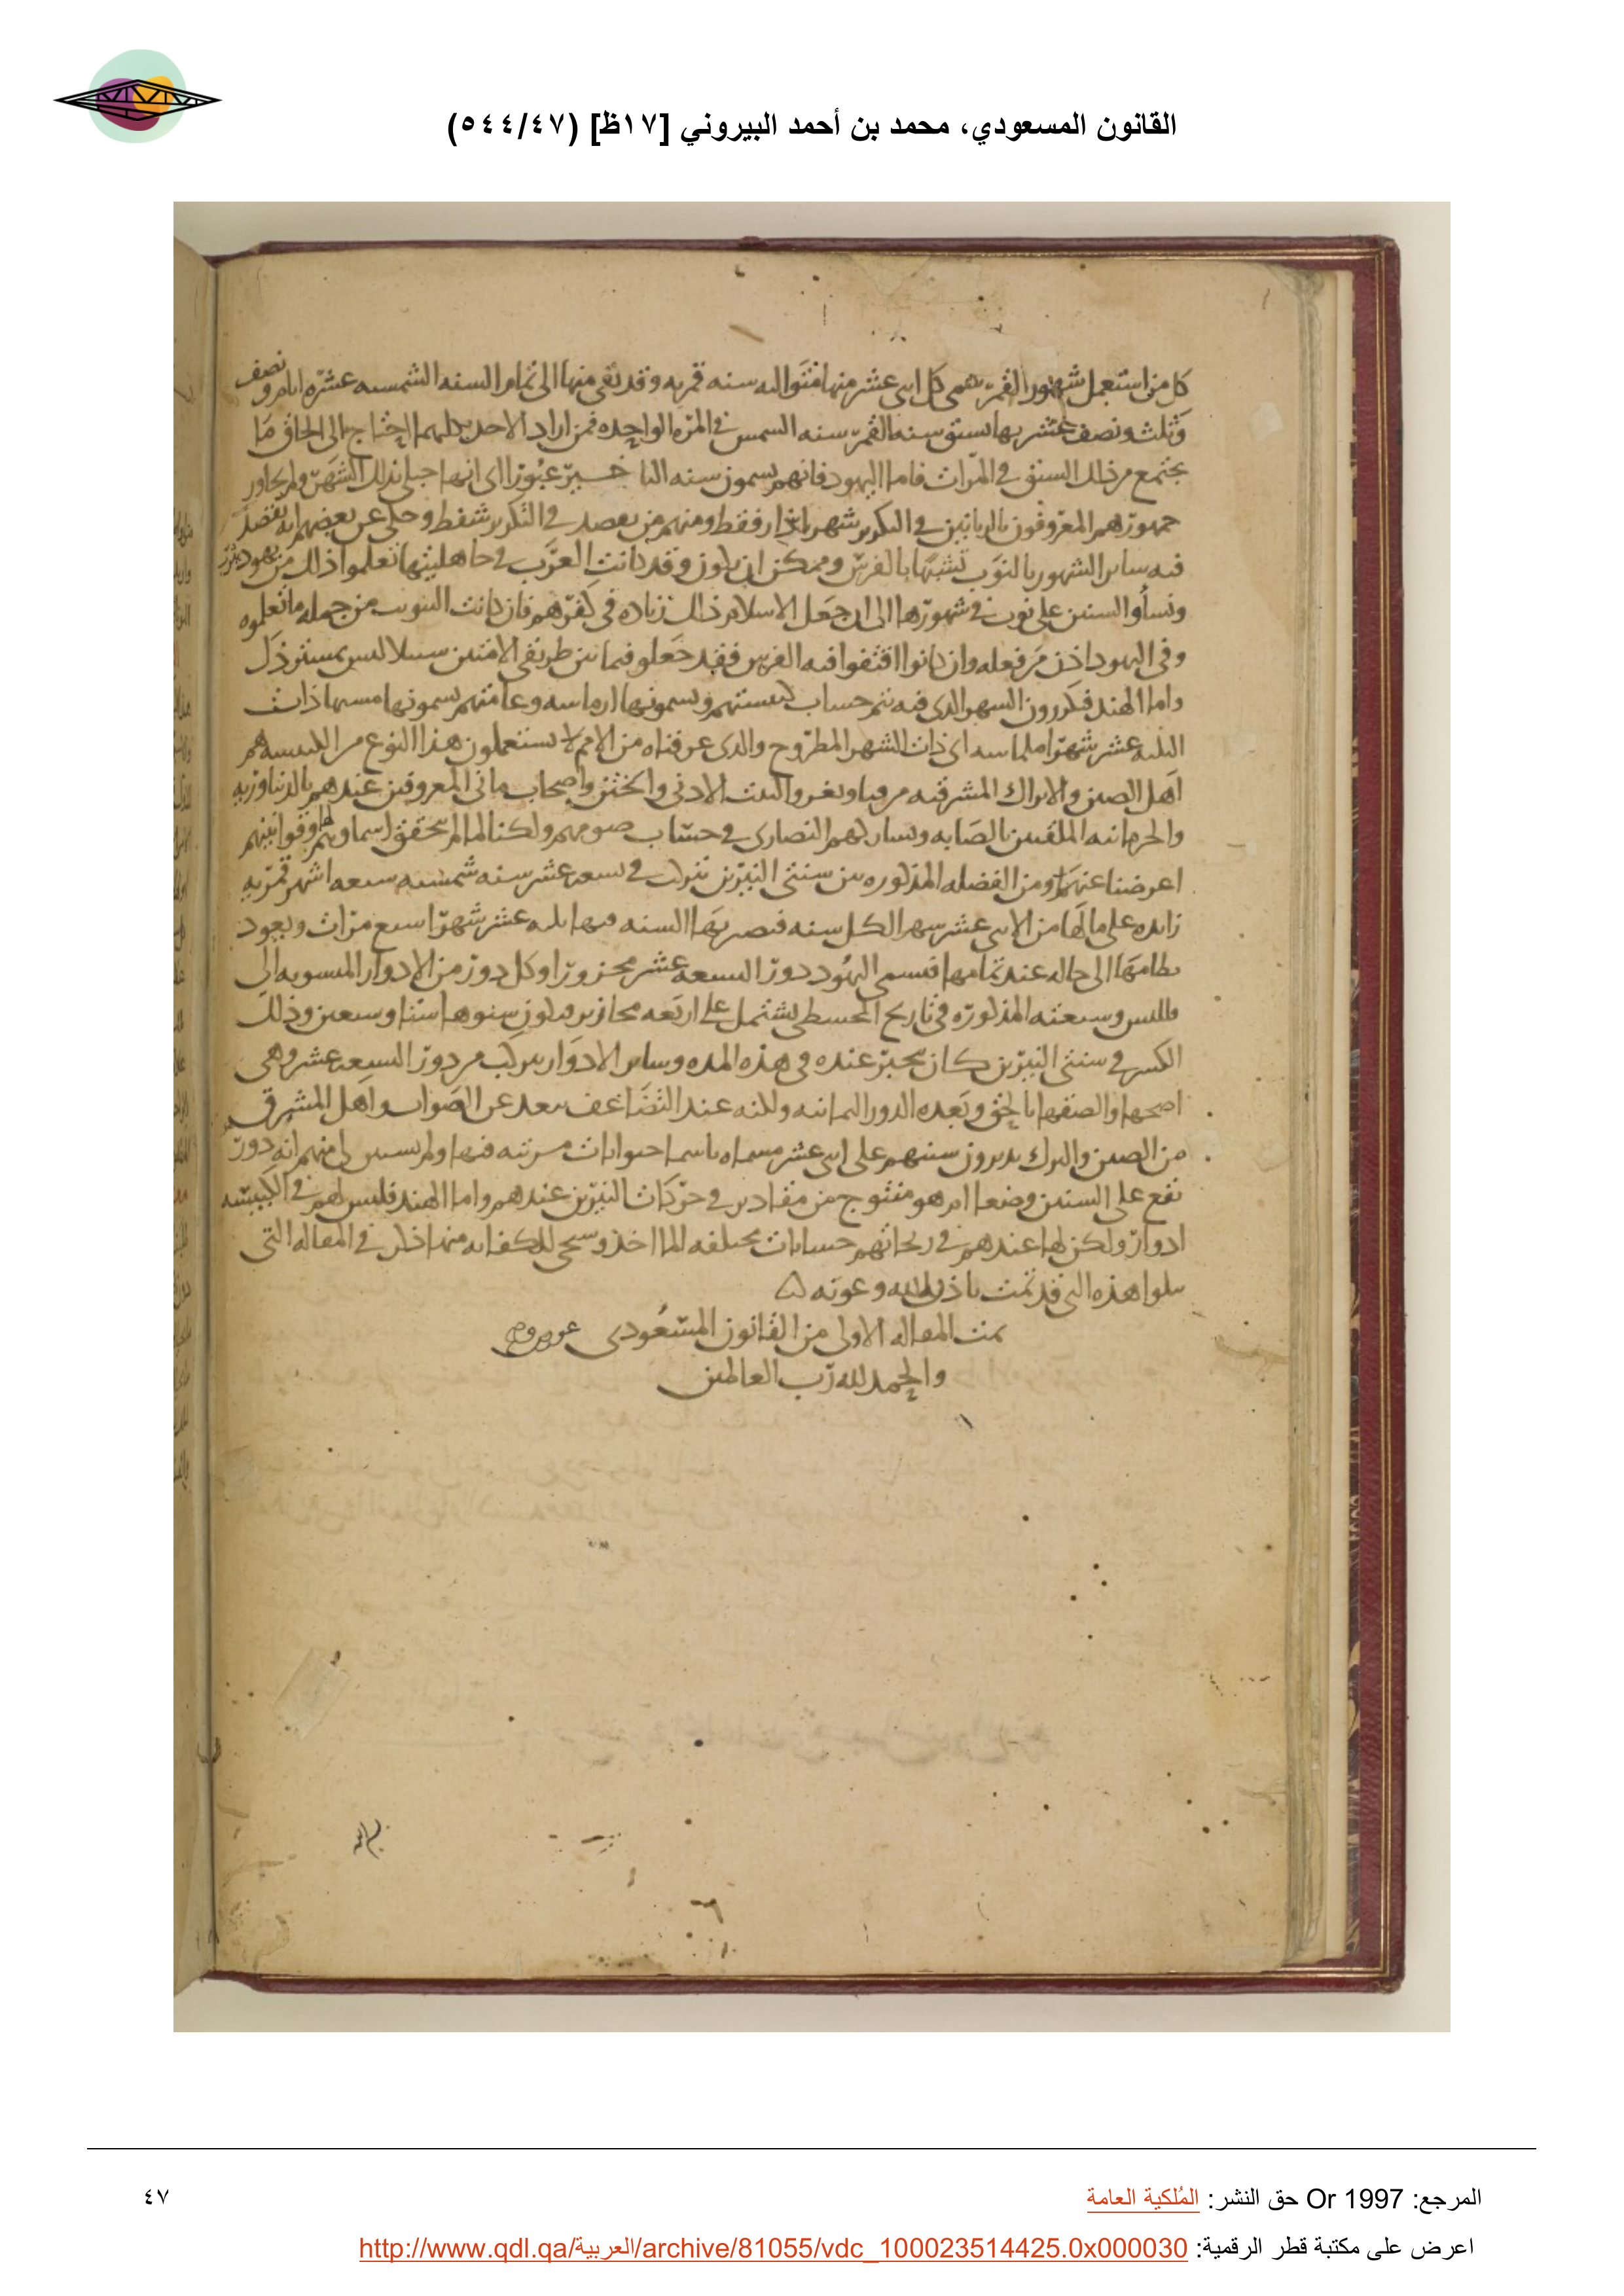 القانون المسعودي، محمد بن أحمد البيروني [١٧ظ] (٥٤٤/٤٧)
كل من استعمل شهور القمر سمى كل اثنى عشر منها متواليه سنه قمريه وقد بقى منها الى تمام السنه الشمسيه عشره ايام ونصف
وثلث ونصف عشر بها تسبق سنه القمر سنه الشمس فى المره الواحده فمن اراد الاخذ بكليهما احتاج الى الحاق ما
يجتمع من ذلك السبق فى المرات فاما اليهود فانهم يسمون سنه عبورا اى انها حبلى بذلك الشهر ولم يجاوز
جمهورهم المعروفون بالربانيين فى التكرير شهر اذار فقط ومنهم من يقصد فى التكرير شفط وحكى عن بعضهم انه يقصد
فيه ساير الشهور بالنوب تشبها بالفرس وممكن ان يكون وقد كانت العرب فى جاهليتها تعلموا ذلك من يهود يثرب
ونسأوا السنين على نوب فى شهورها الى ان جعل الاسلام ذلك زياده فى كفرهم فان كانت النوب من جمله ما تعلموه
وفى اليهود اذن من فعله وان كانوا اقتفوا فيه الفرس فقد جعلوا فيما بين طريقى الامتين سبيلا ليس بمسترذل
واما الهند فيكررون الشهر الذى فيه يتم حساب كبيستهم ويسمونها ادماسه وعامتهم يسمونها ذات
الثلثه عشر شهرا اى ذات الشهر المطروح والذى عرفناه من الامم لا يستعملون هذا النوع من الكبيسه هم
اهل الصين والاتراك المشرقيه من وتغر والتبت الادنى والختن واصحاب مانى المعروفين عندهم بالديناوريه
والحرمانيه الملقبين بالصابه وتشاركهم النصارى فى حساب صومهم ولكنا لما لم نتحقق اسماوهم وقوانينهم
اعرضنا عنها ومن الفضله المذكوره بين سنتى النيرين تتركب فى تسعه عشر سنه شمسيه سبعه اشهر قمريه
زايده على مالها من الاثنى عشر شهرا لكل سنه فتصير بها السنه فيها ثلثه عشر شهرا سبع مرات ويعود
نظامها الى حاله عند تمامها فسمى اليهود دور التسعه عشر محزورا وكل دور من الادوار المنسوبه الى
فاللبس وسبعته المذكوره فى تاريخ المجسطى يشتمل على اربعه محازير فيكون سنوها ستا وسبعين وذلك
الكسر فى سنتى النيرين كان ينجبر عنده فى هذه المده وساير الادوار تتركب من دور التسعه عشر وهى
اصحها والصقها بالحق وبعده الدور الثمانيه ولكنه عند التضاعف يبعد عن الصواب واهل المشرق
من الصين والترك يديرون سنيهم على اثنى عشر مسماه باسما حيوانات مرتبه فيها ولم يتبين لى منهم انه دور
تقع على السنين وضعا ام هو منتوج من مقادير فى حركات النيرين عندهم واما الهند فليس لهم فى الكبيسه
ادوار ولكن لها عندهم فى زيجاتهم حسابات مختلفه الماخذ وسيجى للكفايه منها ذكر فى المقاله التى
تتلوا هذه التى قد تمت باذن الله وعونه
تمت المقاله الاولى من القانون المسعودى
والحمد لله رب العالمين
المرجع: Or 1997 حق النشر: المُلكية العامة
٤٧
اعرض على مكتبة قطر الرقمية: http://www.qdl.qa/العربية/archive/81055/vdc_100023514425.0x000030